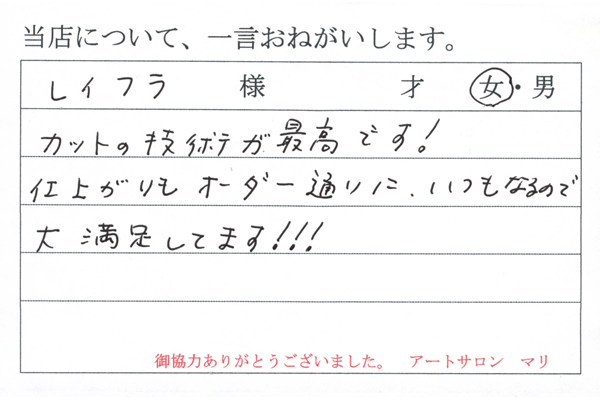 当店について、一言おねがいします。
レイフラ 様 才 女・男
カットの技術が最高です!
仕上がりも オーダー通りに、いつもなるので
大満足してます!!!
御協力ありがとうございました。 アートサロン マリ